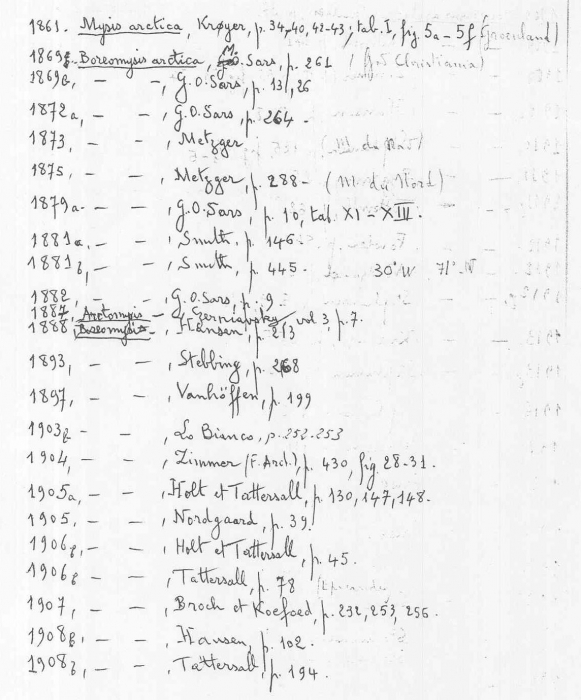 1861. Mysis arctica, Krøyer, p. 34, 40, 42-43; tab. I, fig. 5a - 5f (Groenland)
1869 Boreomysis arctica, M. Sars, p. 261 (g. Christiania)
1869b, - - , G.O. Sars, p. 131, 26
1872a, - - , G.O. Sars, p. 264.
1873, - - , Metzger
1875, - - , Metzger, p. 288 - (M. du Nord)
1879a - - , G.O. Sars, p. 10, tab. XI - XIII.
1881a, - - , Smith, p. 146
1881b, - - , Smith, p. 445. 30° W 71° W
1882, - - , G.O. Sars, p. 9
1887, Arctomysis - , Czerniavsky vol 3, p. 7.
1888, Boreomysis - , Hansen, p. 213
1893, - - , Stebbing, p. 268
1897, - - , Vanhöffen, p. 199
1903b - - , Lo Bianco, p. 252-253
1904, - - , Zimmer (F. Arct.), p. 430, fig. 28-31.
1905a, - - , Holt et Tattersall, p. 130, 147, 148.
1905, - - , Nordgaard, p. 39.
1906, - - , Holt et Tattersall, p. 45.
1906b - - , Tattersall, p. 78
1907, - - , Broch et Koefoed, p. 232, 253, 256.
1908b, - - , Hansen, p. 102.
1908b, - - , Tattersall, p. 194.